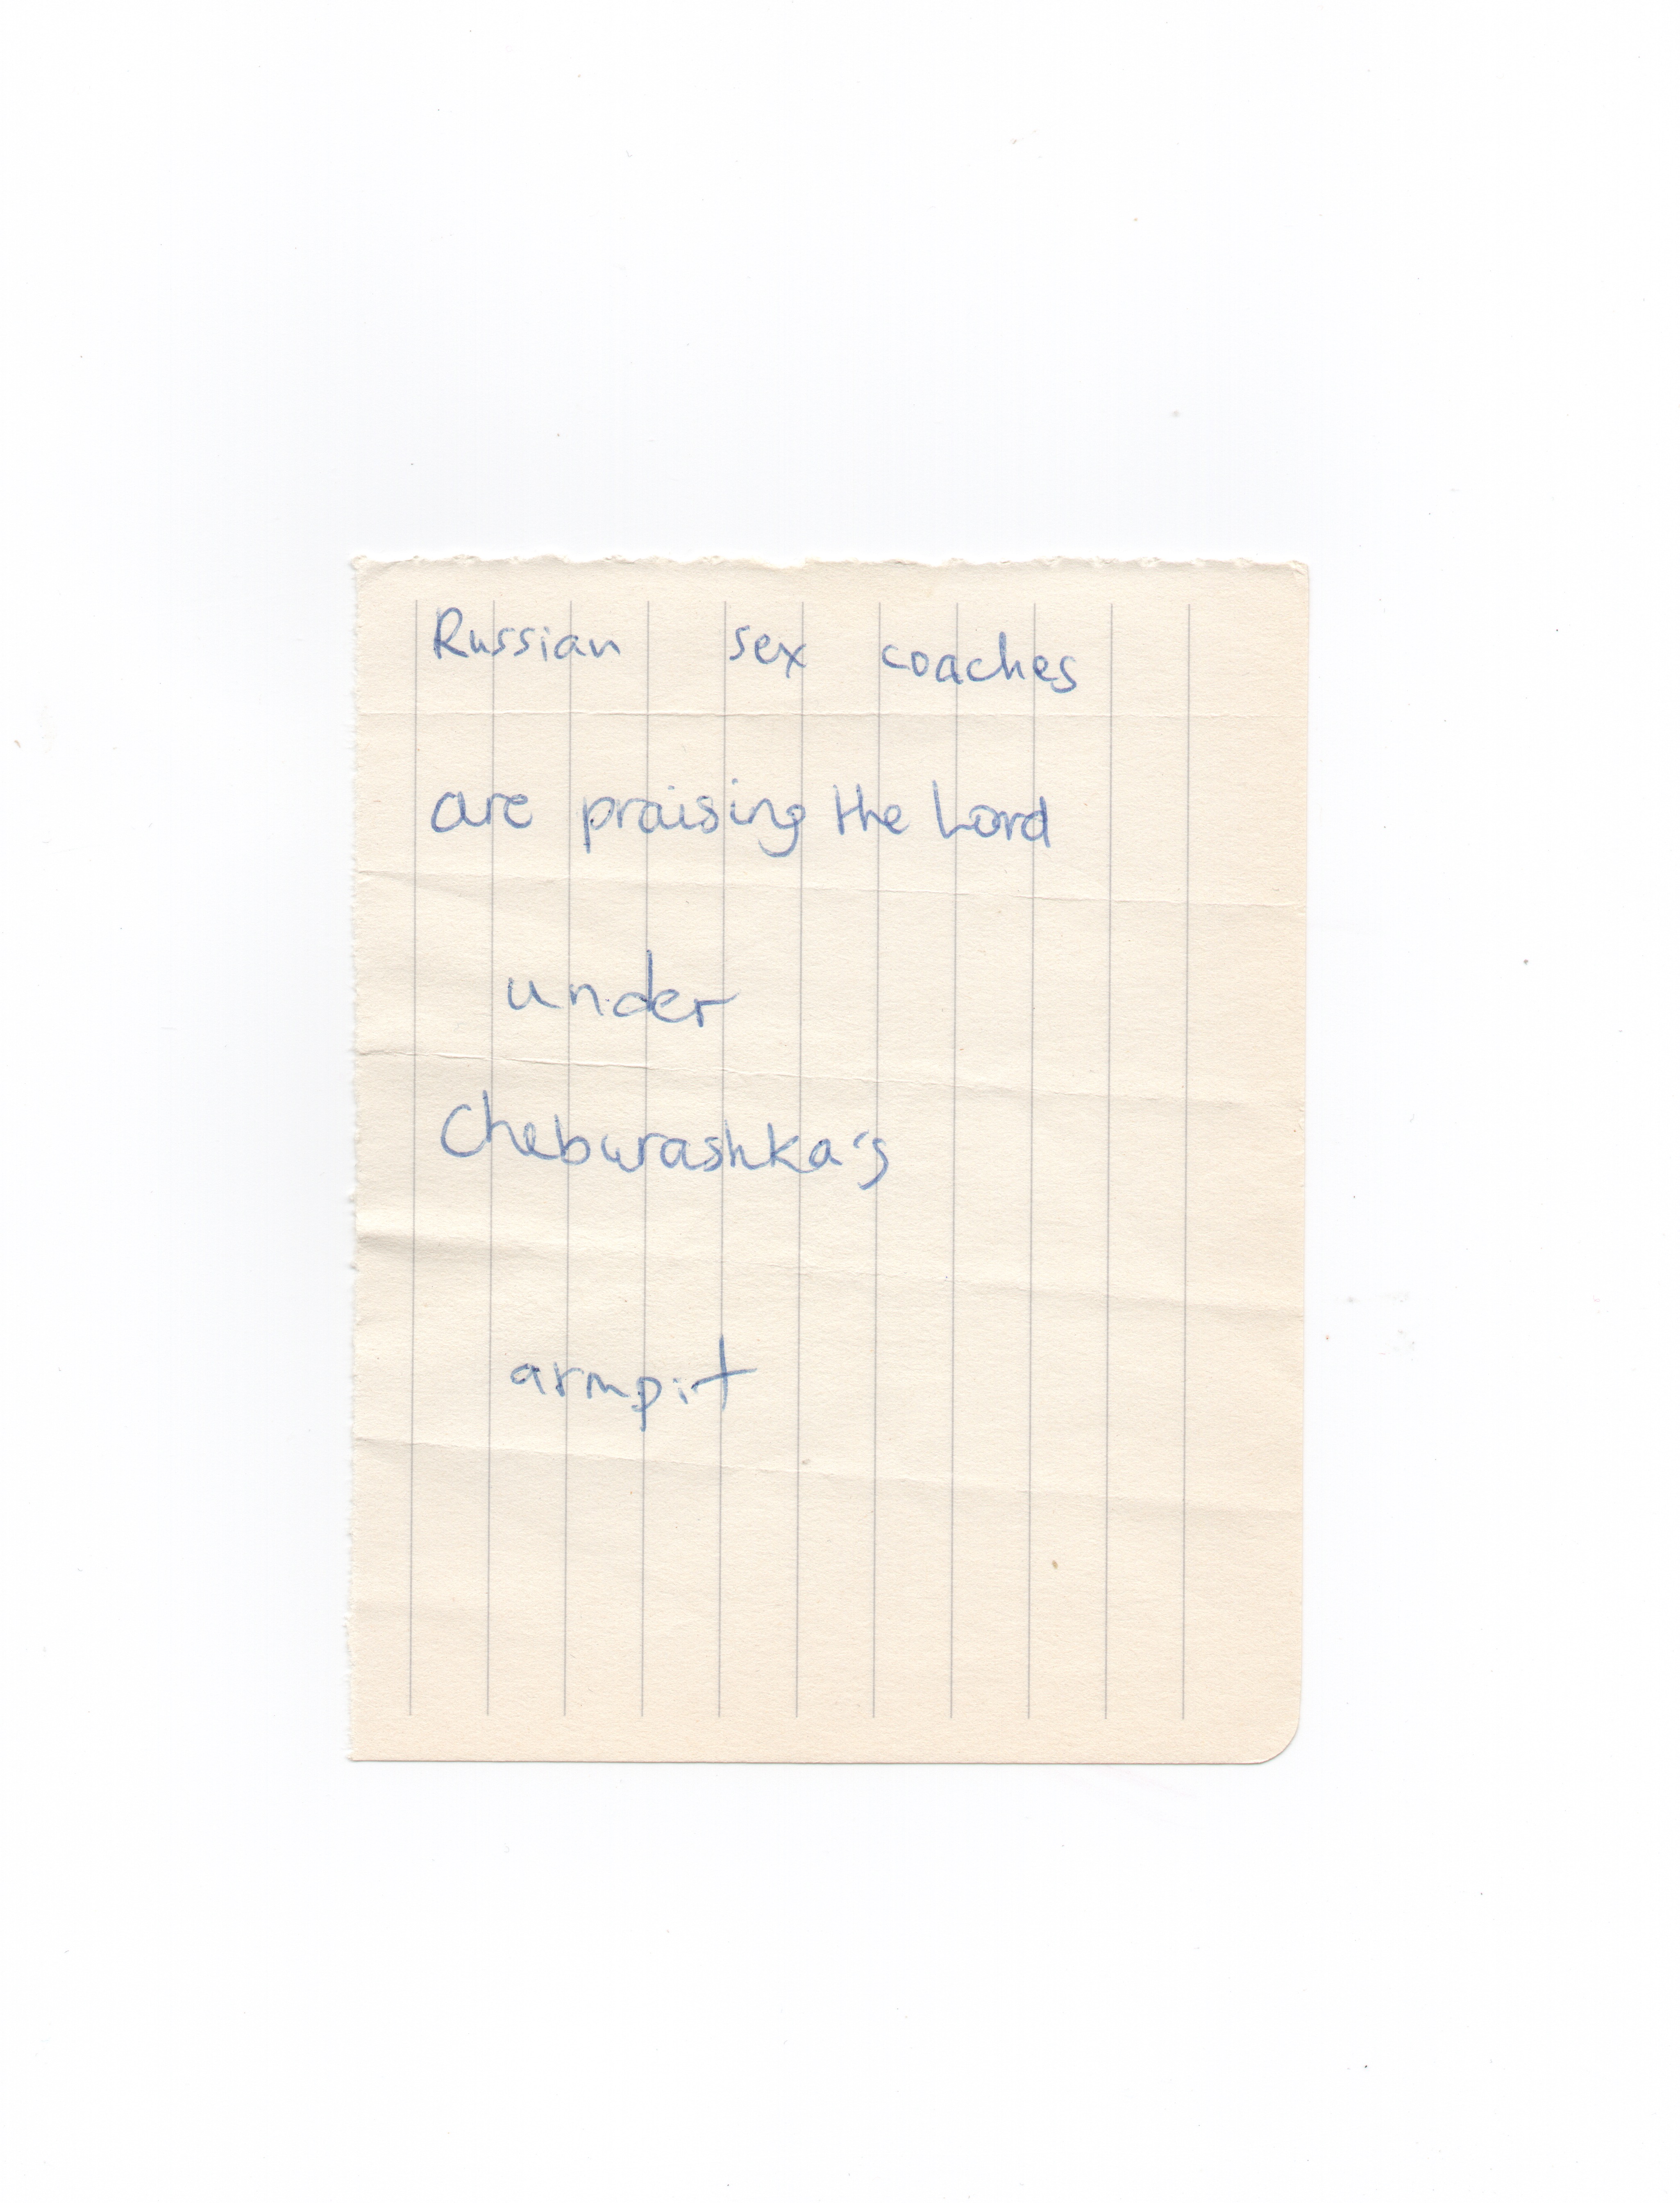 Russian sex coaches
are praising the Lord
under
Cheburashka's
armpit